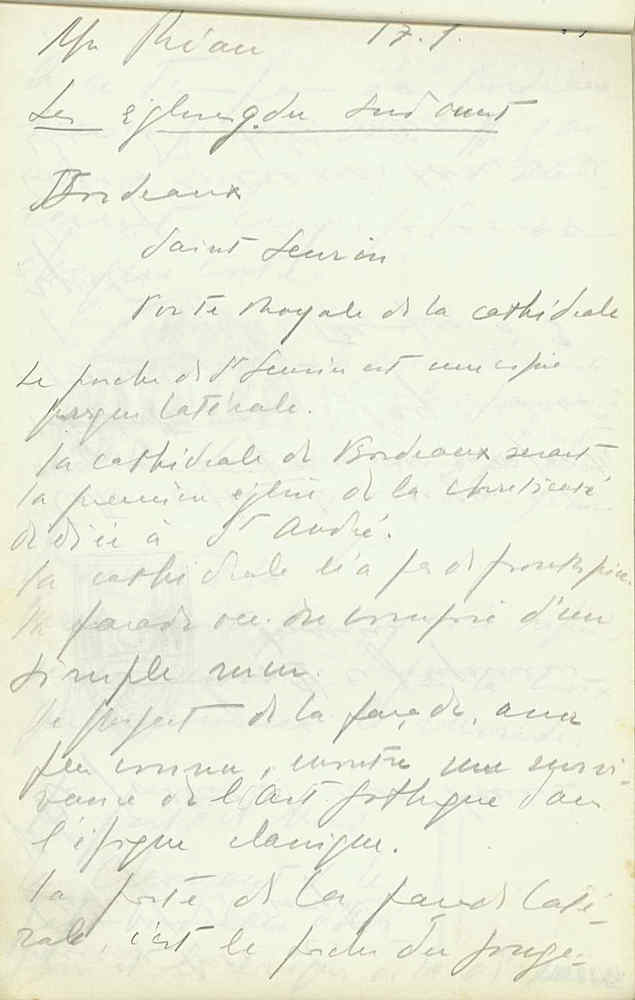 Mr Réau 17.1.
Les églises du sud ouest
Bordeaux
Saint Seurin
Porte Royale de la cathédrale
Le porche de St Seurin est une copie
presque latérale.
La cathédrale de Bordeaux serait
la première église de la chrétienté
dédiée à St André.
La cathédrale n'a pas de frontispice.
La façade occ. du composé d'un
simple mur.
Le projet de la façade, assez
peu connu, montre une survi-
vance de l'Art gothique dans
l'époque classique.
La porte de la façade laté-
rale, c'est le porche du Juge-